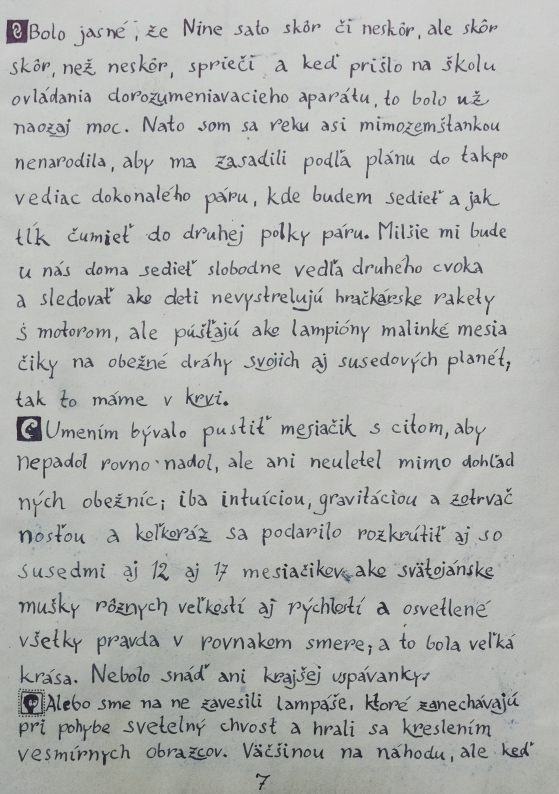 Bolo jasné, že Nine sato skôr či neskôr, ale skôr
skôr, než neskôr, sprieči a keď prišlo na školu
ovládania dorozumeniavacieho aparátu, to bolo už
naozaj moc. Nato som sa reku asi mimozemšťankou
nenarodila, aby ma zasadili podľa plánu do takpo
vediac dokonalého páru, kde budem sedieť a jak
tĺk čumieť do druhej polky páru. Milšie mi bude
u nás doma sedieť slobodne vedľa druhého cvoka
a sledovať ako deti nevystrelujú hračkárske rakety
s motorom, ale púšťajú ako lampióny malinké mesia
čiky na obežné dráhy svojich aj susedových planét,
tak to máme v krvi.
Umením bývalo pustiť mesiačik s citom, aby
nepadol rovno nadol, ale ani neuletel mimo dohľad
ných obežníc; iba intuíciou, gravitáciou a zotrvač
nosťou a koľkoráz sa podarilo rozkrútiť aj so
susedmi aj 12 aj 17 mesiačikov ako svätojánske
mušky rôznych veľkostí aj rýchlostí a osvetlené
všetky pravda v rovnakom smere, a to bola veľká
krása. Nebolo snáď ani krajšej uspávanky.
Alebo sme na ne zavesili lampáše, ktoré zanechávajú
pri pohybe svetelný chvost a hrali sa kreslením
vesmírnych obrazcov. Väčšinou na náhodu, ale keď
7